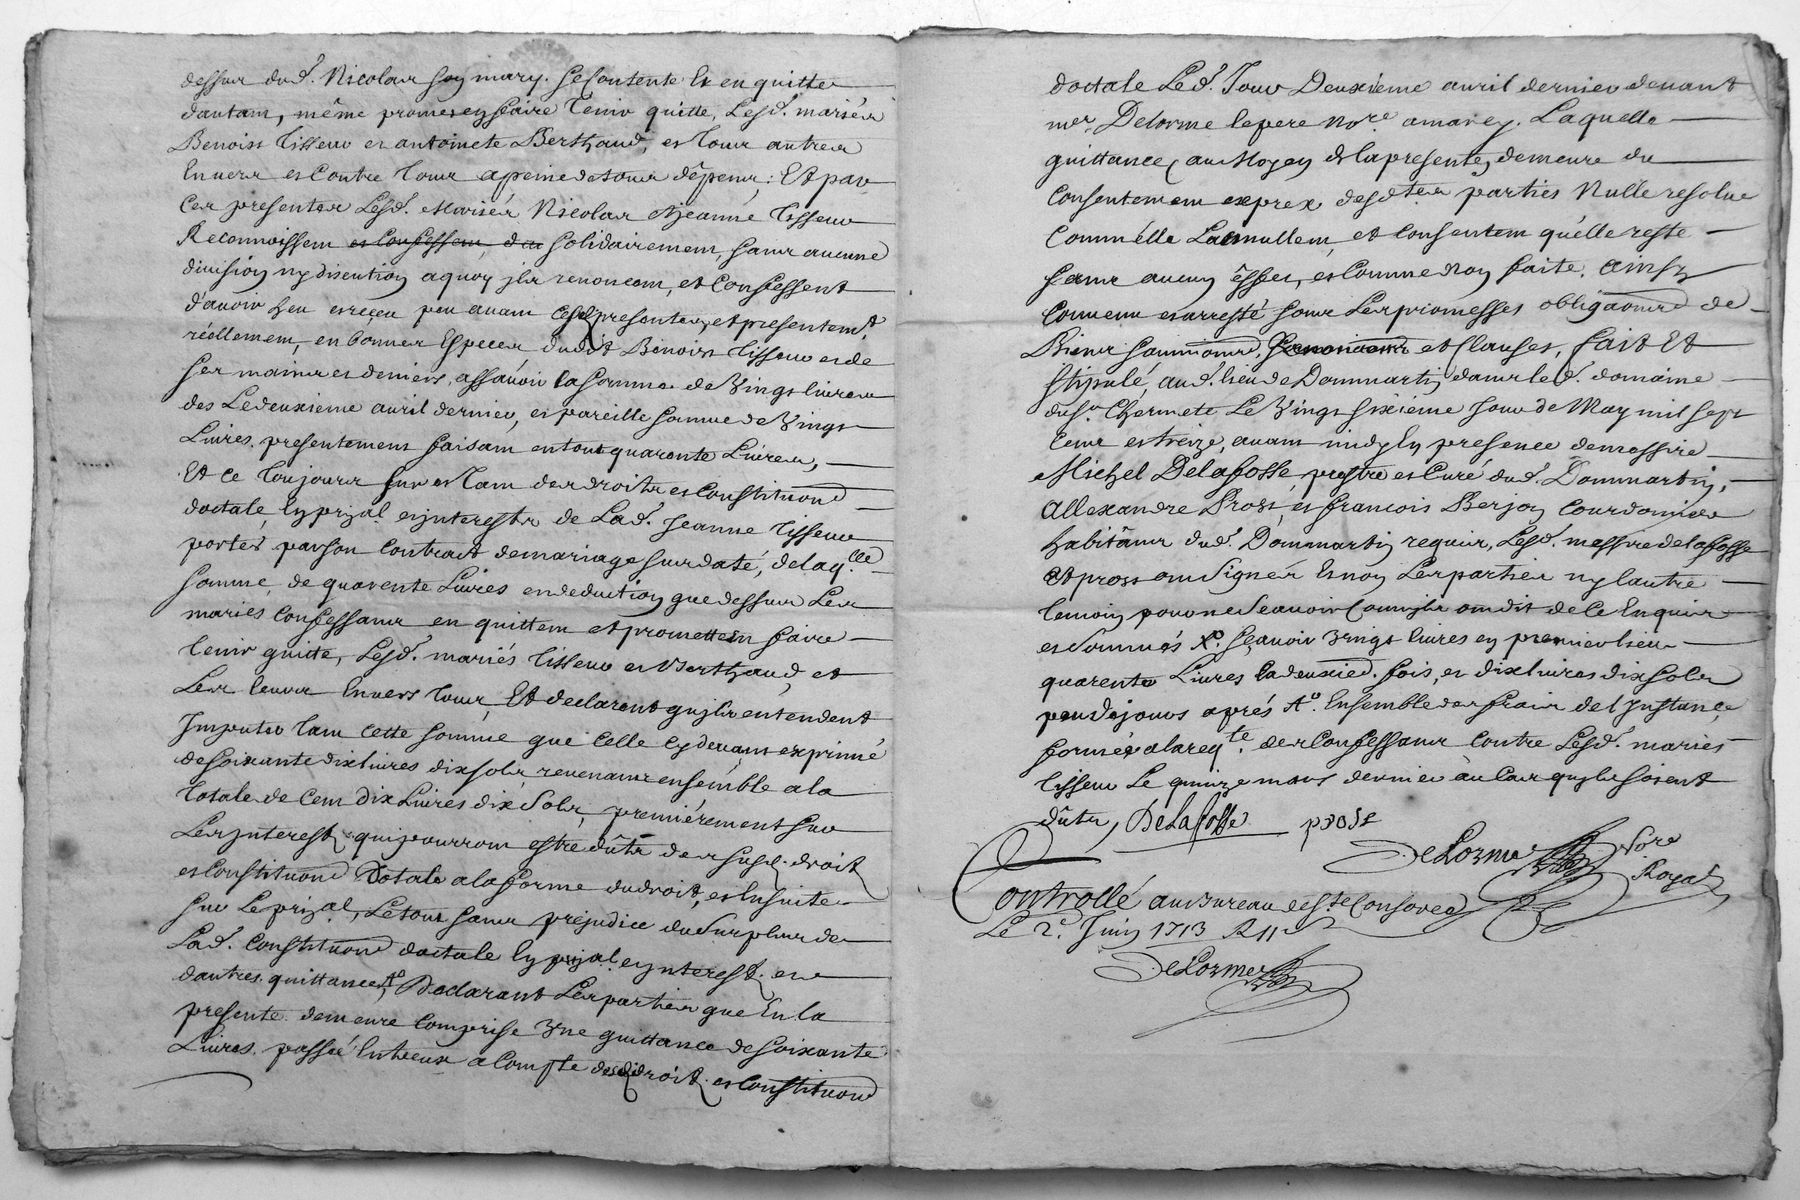 dessus dud. Nicolas son mary. Se Contente Et en quitte
dautant, même promesen faire Tenir quitte, Lesd. mariés
Benoist Tisseur et antoinete Berthaud, et Tous autres
Envers et Contre Tous apeine de tous dêpens : Et par
Ces presentes Lesd. Mariés Nicolas et Jeanne Tisseur
Reconnoissent solidairement, sans aucune
division ny discution aquoy jls renoncent, et Confessent
d'avoir heu et reçeu peu avant presentes, et presentemt
réellement, en bonnes Especes dudit Benoist Tisseur et de
ses mains et deniers, assavoir la somme de Vingt livres
des Le deuxieme avril dernier, et pareille somme de Vingt
Livres presentement faisant en tout quarente Livres,
Et ce Toujours sur et Tant des droits et Constituõns
doctale, En prizal. et jnterests de Lad. Jeanne Tisseur
portés par son Contrat de mariage sus daté, de laqlle
somme, de quarente Livres en deduction que dessus Les
mariés Confessants en quittent et promettent faire
Tenir quitte, Lesd. mariés Tisseur et Berthaud, et
Les leurs Envers Tous, Et declarent qujls entendent
Jmputer Tant Cette somme que Celle Cy devant exprimé
de soixante dix livres dix sols, revenants ensemble a la
Totale de Cent Dix Livres dix Sols, premiérement sur
Les jnterests quj pourront estre dûts des susd. droit
et Constituõns Dotale a la forme du droit, et Ensuite
sur Le prizal, Le tout sans prejudice du surplus de
Lad. Constituõn doctale En prizal. et jnterests. et
dautres quittances, Declarant Les parties que En la
presente demeure Comprise Vne quittance de soixante
Livres passée Entreux a Compte desd droits et Constituõns
doctale Led. Jour Deuxiéme avril dernier devant
mer Delorme le pere nore amarey. Laquelle
quittance au Moyen de la presente, demeure du
Consentement exprex desdtes parties Nulle resolue
Comm'elle L'annullent, et Consentent qu'elle reste
sans aucun êffet, et Comme non faite, Ainsy
Convenu et arresté sous Les promesses obligaõns de
Biens soumiõns, Renonciaõns et Clauses, fait Et
stipulé, aud. lieu de Dommartin dans led. domaine
du Sr. Chermete Le Vingt sixiéme Jour de May mil sept
Cent et treize, avant midy En presence de messire
Michel Delafosse, prestre et Curé dud. Dommartin,
Allexandre Pross, et francois Berjon Cordonnier
habitânts dud. Dommartin requis, Lesd. messire delafosse
Et pross ont signés Et non Les parties ny lautre
temoin pour ne Scavoir Comm'jls ont dit de Ce Enquis
et Sommés Xo. sçavoir vingt livres en premier lieu
quarente Livres la deuxiéd. fois, et dix livres dix sols
peu de jours aprés Ao. Ensemble des frais de l'Justance
formée a la reqte des Confessants Contre Lesd. mariés
Tisseur Le quinze mars dernier au Cas qujls soient
dûts, DeLafosse pross
DeLorme Nore
Royal
Controllé au Bureau de Ste Consorce
Le 2e. Juin 1713 R 11 s
DeLorme